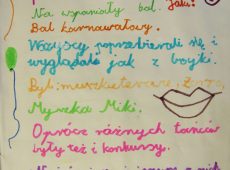 Na wspaniały bal. Jaki?
Bal karnawałowy.
Wszyscy poprzebierali się i
wyglądali jak z bajki.
Byli: muszkieterowie, Zorro,
Myszka Miki.
Oprócz różnych tańców
były też i konkursy.